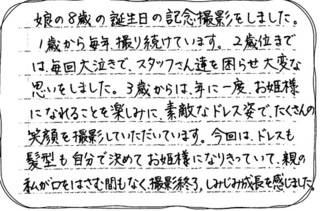 娘の8歳の誕生日の記念撮影をしました。
1歳から毎年、撮り続けています。2歳位まで
は、毎回大泣きで、スタッフさん達を困らせ大変な
思いをしました。3歳からは、年に一度、お姫様
になれることを楽しみに、素敵なドレス姿で、たくさんの
笑顔を撮影していただいています。今回は、ドレスも
髪型も自分で決めてお姫様になりきっていて、親の
私が口をはさむ間もなく、撮影終了。しみじみ成長を感じました。